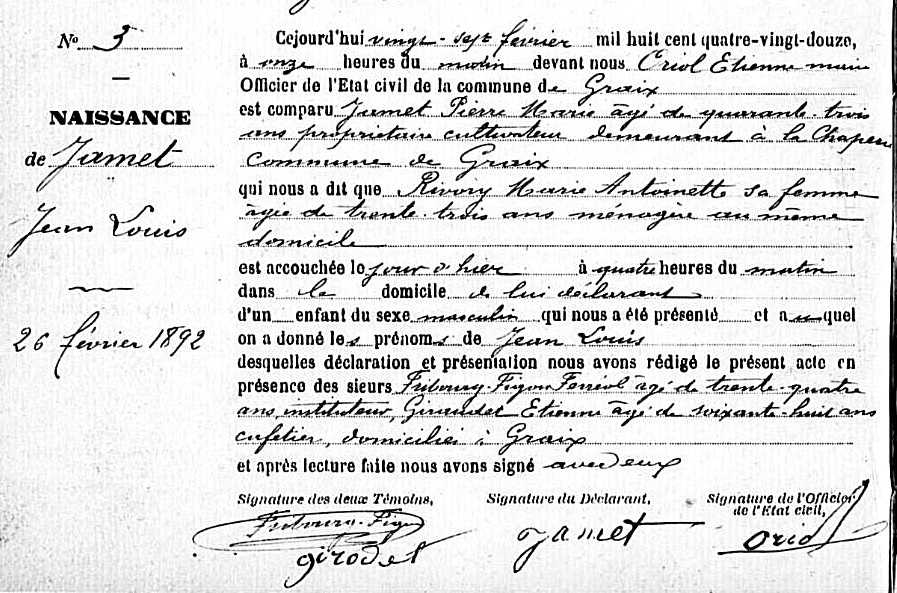 N° 3
NAISSANCE
de Jamet
Jean Louis
26 février 1892
Cejourd'hui vingt-sept février mil huit cent quatre-vingt-douze,
à onze heures du matin devant nous Oriol Etienne maire
Officier de l'Etat civil de la commune de Graix
est comparu Jamet Pierre Marie âgé de quarante-trois
ans propriétaire cultivateur demeurant à la
commune de Graix
qui nous a dit que Rivory Marie Antoinette sa femme
âgée de trente-trois ans ménagère au même
domicile
est accouchée le jour d'hier à quatre heures du matin
dans le domicile de lui déclarant
d'un enfant du sexe masculin qui nous a été présenté et auquel
on a donné les prénoms de Jean Louis
desquelles déclaration et présentation nous avons rédigé le présent acte en
présence des sieurs Fribourg-Figon Ferréol âgé de trente-quatre
ans, instituteur, Etienne âgé de soixante-huit ans
cafetier, domiciliés à Graix
et après lecture faite nous avons signé avec eux
Signature des deux Témoins,
Signature du Déclarant,
Signature de l'Officier
de l'Etat civil,
Fribourg-Figon
girodet
Jamet
Oriol